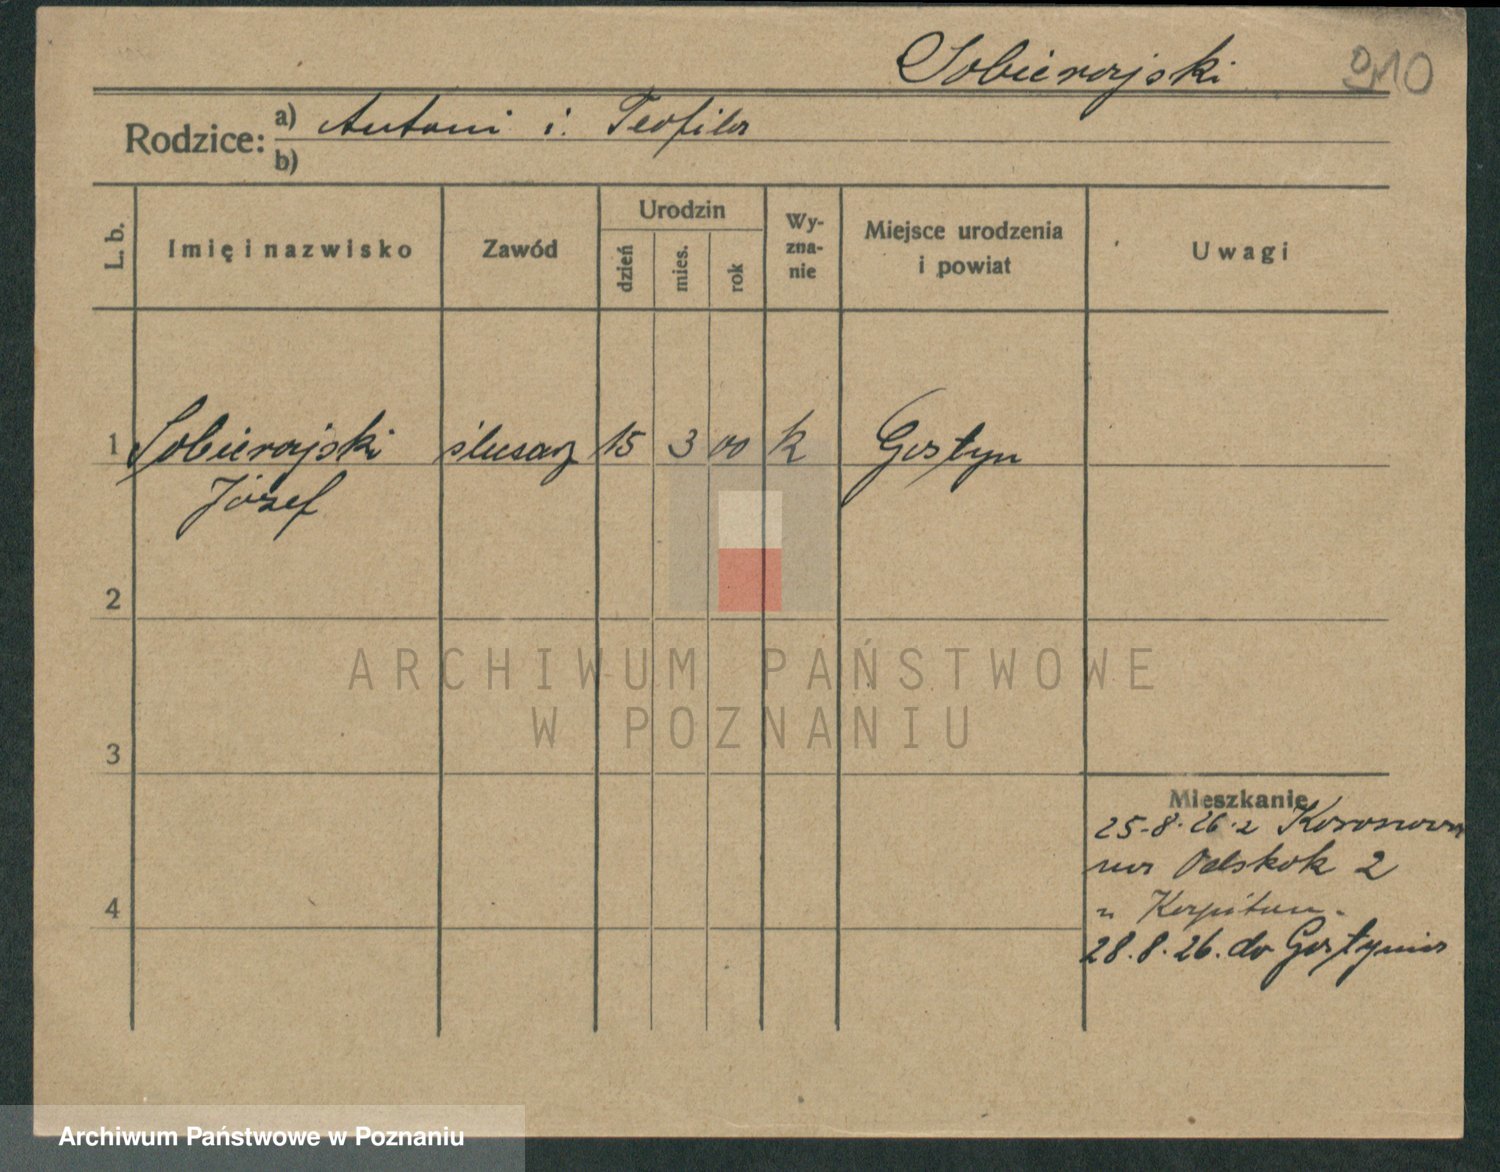 Sobierajski
910
Rodzice: a) Antoni i Teofila
b)
L. b.
Imię i nazwisko
Zawód
Urodzin
dzień
mies.
rok
Wy-
zna-
nie
Miejsce urodzenia
i powiat
Uwagi
1 Sobierajski ślusarz 15 3 00 k Gostyn
Józef
2
3
4
Mieszkanie
25-8-26 z Koronowa
na Odskok 2
u Kapitan
28.8.26. do Gostynia
ARCHIWUM PAŃSTWOWE
W POZNANIU
Archiwum Państwowe w Poznaniu